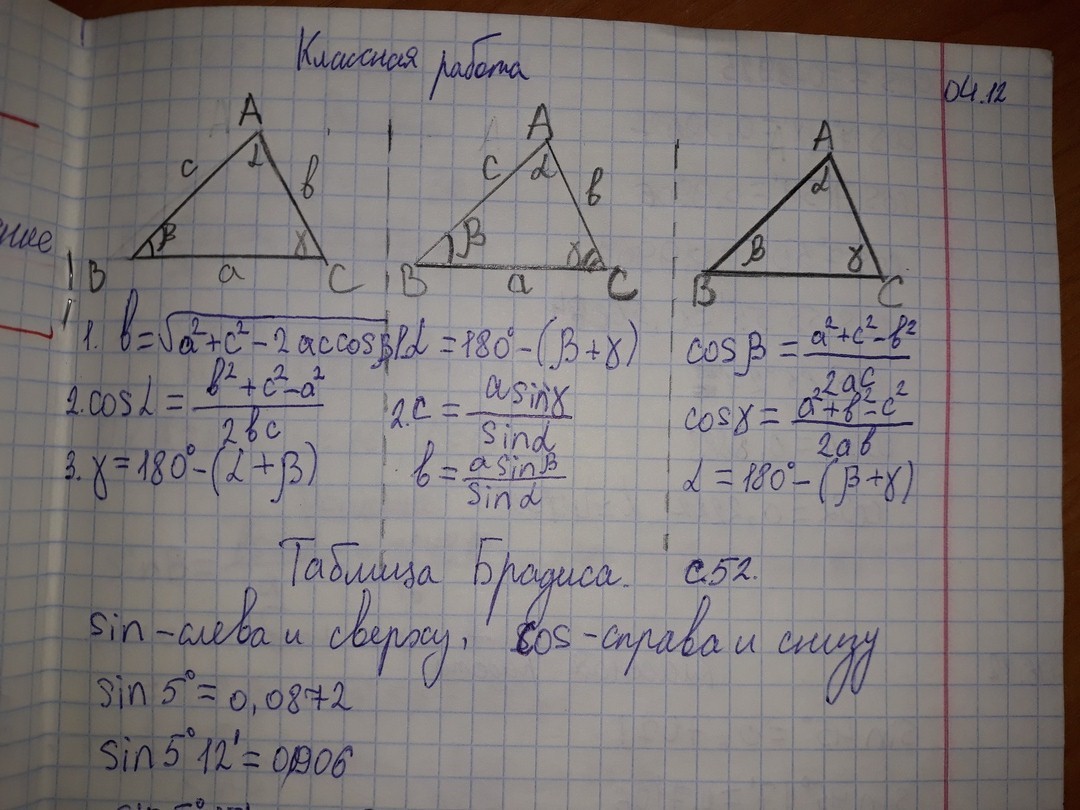 Классная работа
04.12
A
c
α
в
β
γ
B
a
C
A
c
α
в
β
γ
B
a
C
A
α
β
γ
B
C
1. в=√a²+c²-2accosβ
2. cosα = b²+c²-a² / 2bc
3. γ=180°-(α+β)
1. α=180°-(β+γ)
2. c = a sinγ / sinα
в = a sinβ / sinα
cosβ = a²+c²-в² / 2ac
cosγ = a²+в²-c² / 2aв
α=180°-(β+γ)
Таблица Брадиса. с.52.
sin-слева и сверху, cos-справа и снизу
sin 5°=0,0872
sin 5°12'=0,0906